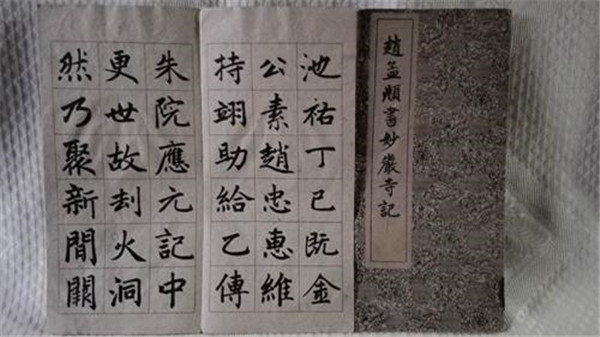 趙孟頫書妙嚴寺記
池祐丁巳既金
公素趙忠惠維
持翊助給乙傳
朱院應元記中
更世故刦火洞
然乃聚新間關